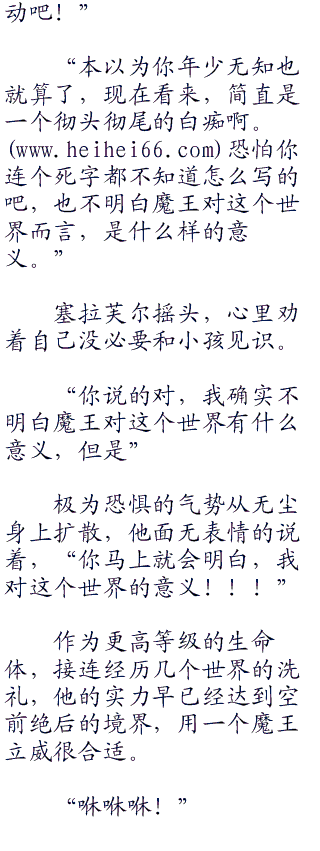 动吧！”
“本以为你年少无知也
就算了，现在看来，简直是
一个彻头彻尾的白痴啊。
(www.heihei66.com)恐怕你
连个死字都不知道怎么写的
吧，也不明白魔王对这个世
界而言，是什么样的意
义。”
塞拉芙尔摇头，心里劝
着自己没必要和小孩见识。
“你说的对，我确实不
明白魔王对这个世界有什么
意义，但是”
极为恐惧的气势从无尘
身上扩散，他面无表情的说
着，“你马上就会明白，我
对这个世界的意义！！！”
作为更高等级的生命
体，接连经历几个世界的洗
礼，他的实力早已经达到空
前绝后的境界，用一个魔王
立威很合适。
“咻咻咻！”